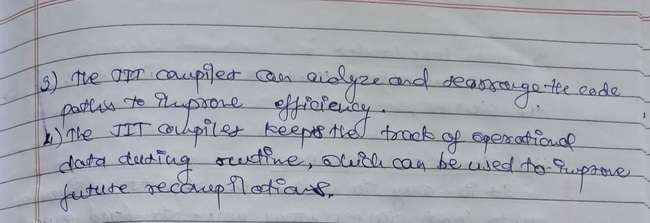 3) The JIT compiler can analyze and rearrange the code
paths to improve efficiency.
4) The JIT compiler keeps the track of operational
data during runtime, which can be used to improve
future recompilations.